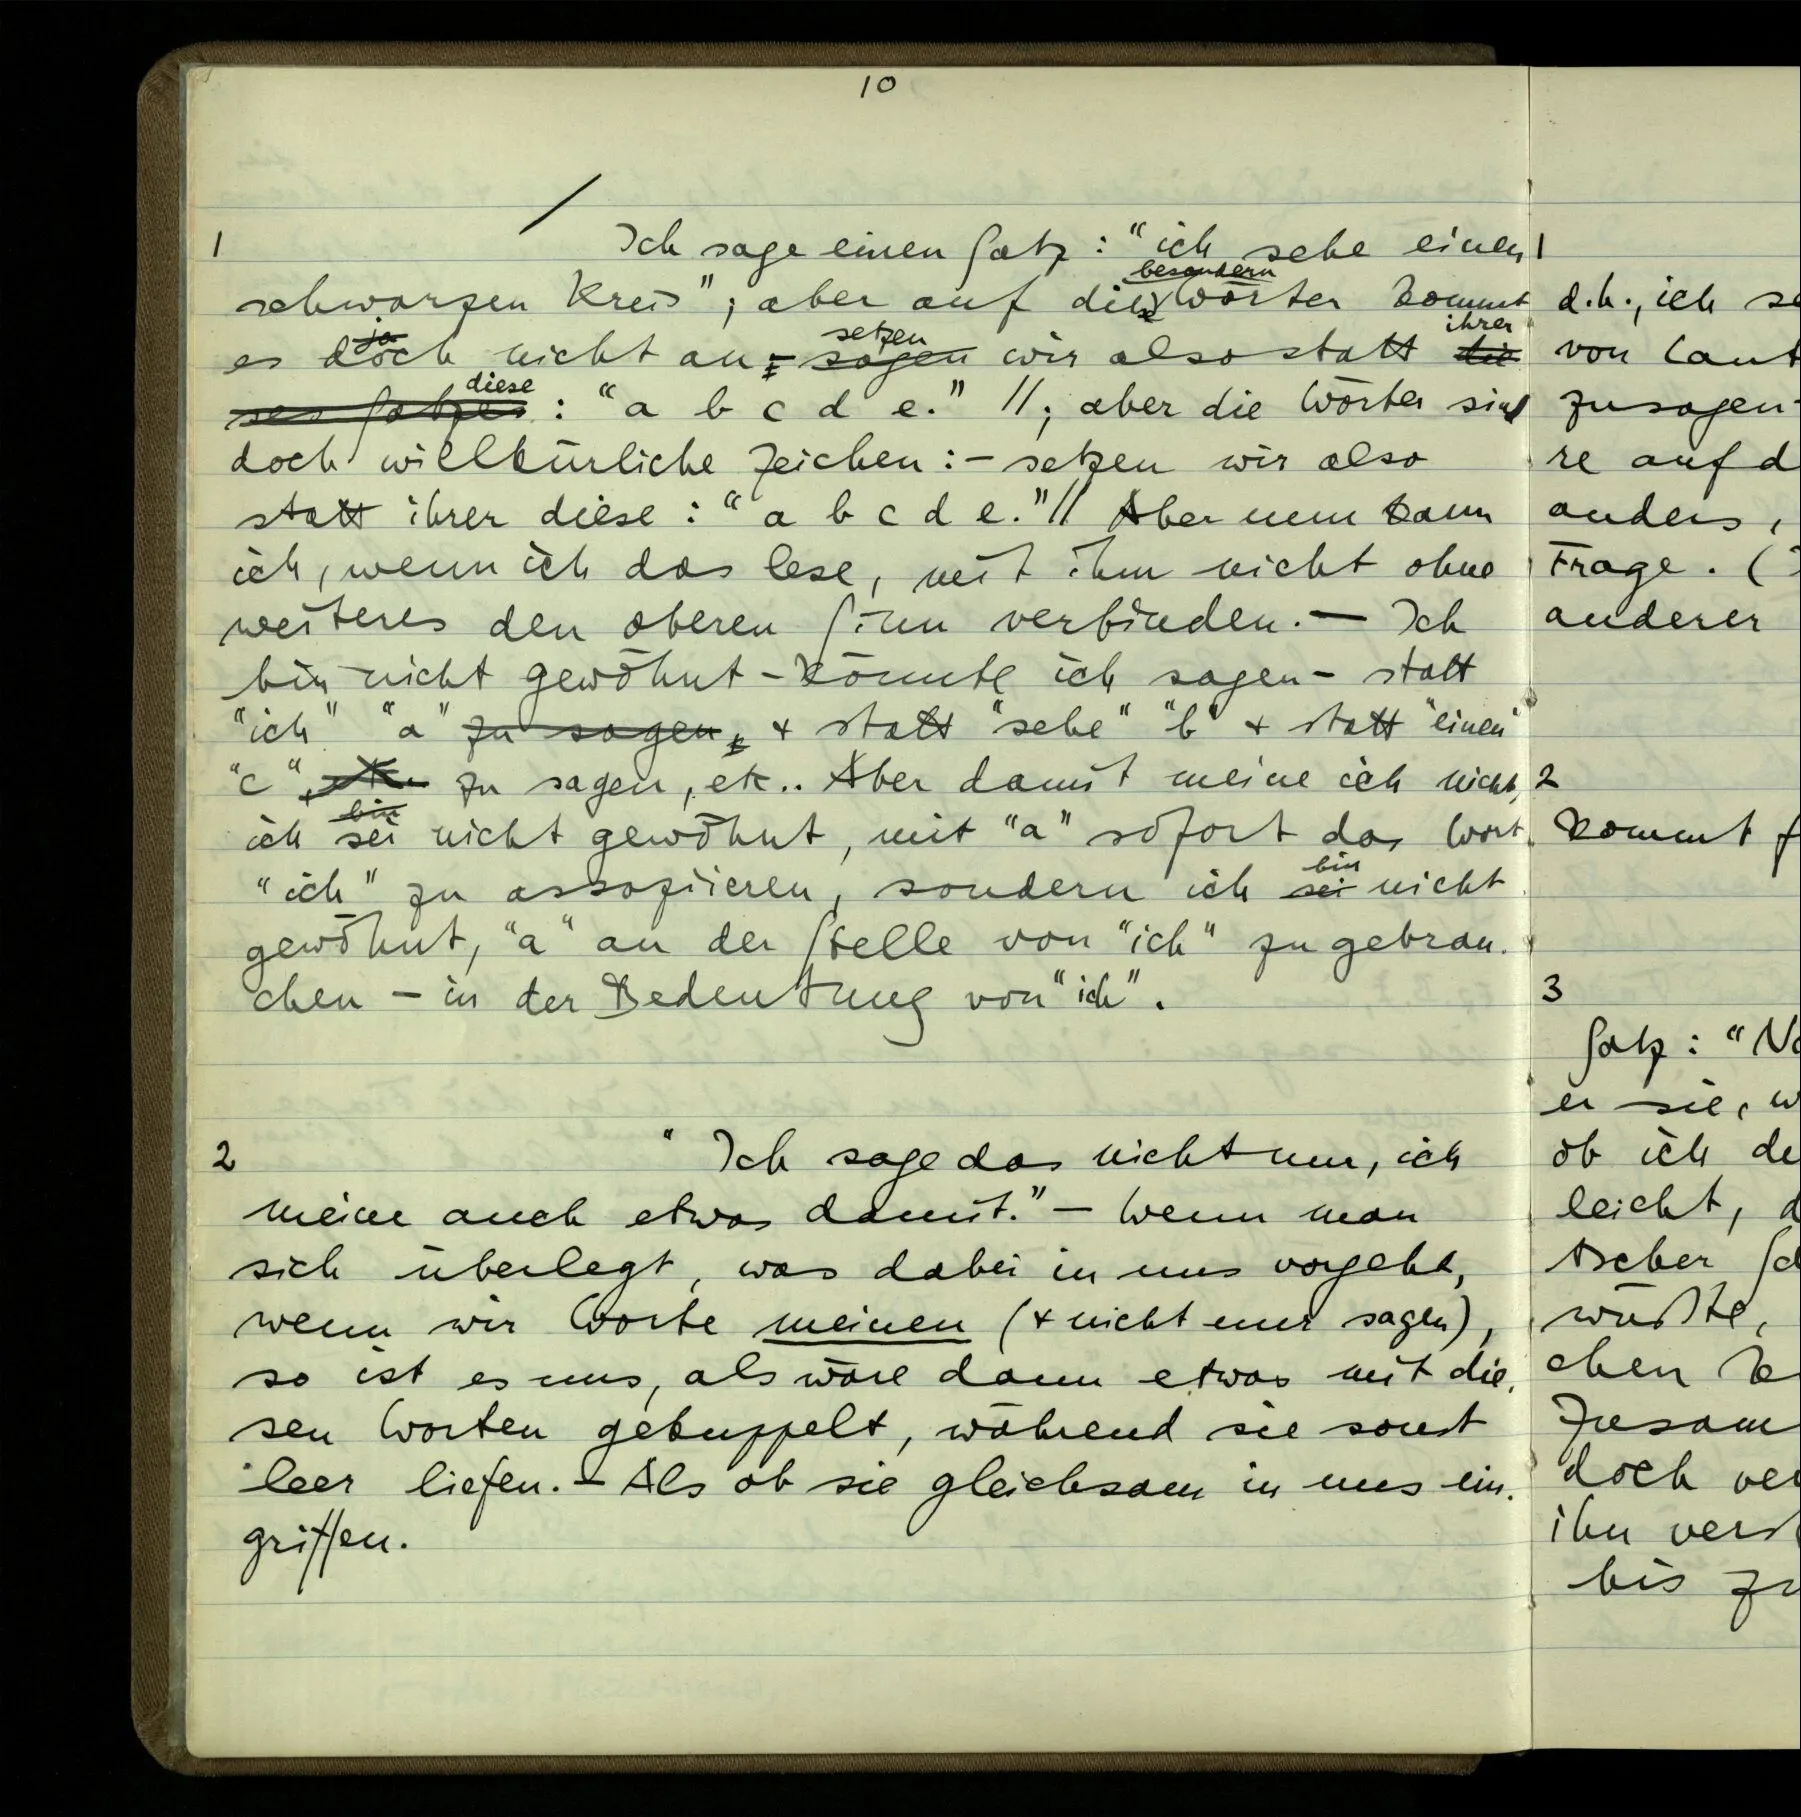 10
1 Ich sage einen Satz: "ich sehe einen
besondern
schwarzen Kreis"; aber auf die Wörter kommt
ja setzen ihrer
es doch nicht an; sagen wir also statt die
diese
ses Satzes: "a b c d e." //; aber die Wörter sind
doch willkürliche Zeichen:– setzen wir also
statt ihrer diese: "a b c d e."// Aber nun kann
ich, wenn ich das lese, mit ihm nicht ohne
weiteres den oberen Sinn verbinden.— Ich
bin nicht gewöhnt – könnte ich sagen – statt
"ich" "a" zu sagen, + statt "sehe" "b" + statt "einen"
"c", etc. zu sagen, etc.. Aber damit meine ich nicht,
bin
ich sei nicht gewöhnt, mit "a" sofort das Wort
bin
"ich" zu assoziieren, sondern ich sei nicht
gewöhnt, "a" an der Stelle von "ich" zu gebrau-
chen – in der Bedeutung von "ich".
2 "Ich sage das nicht nur, ich
meine auch etwas damit." – Wenn man
sich überlegt, was dabei in uns vorgeht,
wenn wir Worte meinen (+ nicht nur sagen),
so ist es uns, als wäre dann etwas mit die-
sen Worten gekuppelt, während sie sonst
leer liefen. – Als ob sie gleichsam in uns ein-
griffen.
1
d.h., ich se
von Laut
zusagen
re auf d
anders,
Frage. (
anderer
2
kommt f
3
Satz: "No
er sie, w
ob ich de
leicht, d
ischer Sa
wüßte,
chen
Zusam
doch ver
ihn verst
bis zu